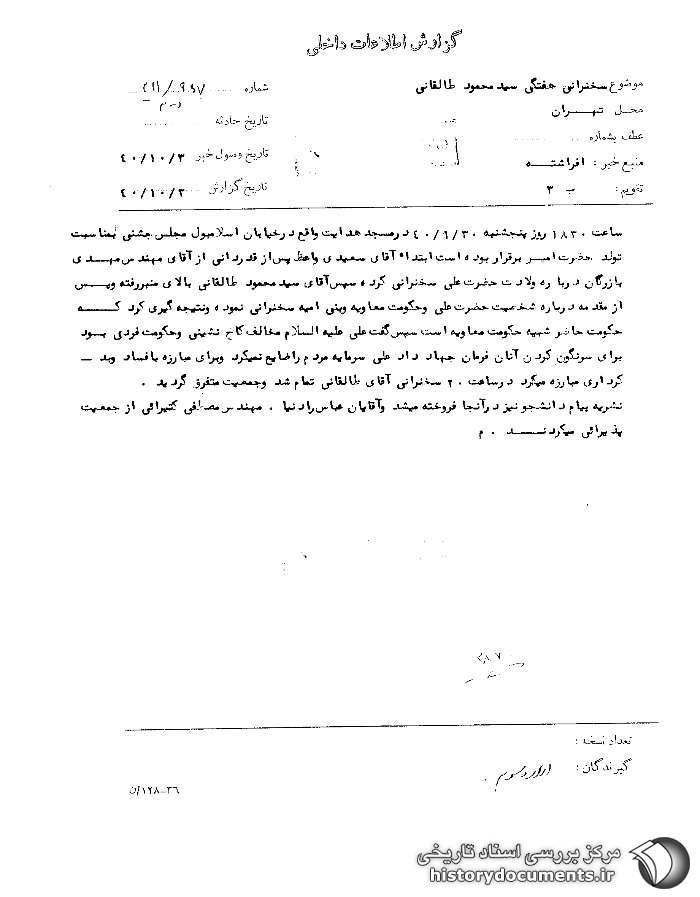 گزارش اطلاعات داخلی
موضوع سخنرانی هفتگی سید محمود طالقانی
شماره
محل تهـــران
تاریخ حادثه
عطف بشماره
منبع خبر : افراشتـــه
تاریخ وصول خبر ۴۰/۱۰/۳
تقویم : ب ۳
تاریخ گزارش ۴۰/۱۰/۳
ساعت ۱۸۳۰ روز پنجشنبه ۴۰/۹/۳۰ در مسجد هدایت واقع در خیابان اسلامبول مجلس جشنی بمناسبت
تولد حضرت امیر برقرار بوده است ابتداء آقای سعیدی واعظ پس از قدردانی از آقای مهندس مهدی
بازرگان درباره ولادت حضرت علی سخنرانی کرده سپس آقای سید محمود طالقانی بالای منبر رفته و پس
از مقدمه درباره شخصیت حضرت علی و حکومت معاویه و بنی امیه سخنرانی نموده و نتیجه گیری کرد کـــه
حکومت حاضر شبیه حکومت معاویه است سپس گفت علی علیه السلام مخالف کاخ نشینی و حکومت فردی بـود
برای سرنگون کردن آنان فرمان جهاد داد علی سرمایه مردم را ضایع نمیکرد و برای مبارزه با فساد و بد ــ
کرداری مبارزه میکرد در ساعت ۲۰ سخنرانی آقای طالقانی تمام شد و جمعیت متفرق گردید .
نشریه پیام دانشجو نیز در آنجا فروخته میشد و آقایان عباس رادنیا . مهندس مصطفی کتیرائی از جمعیت
پذیرائی میکردنـــد . م
۲۸۷
تعداد نسخه :
گیرندگان :
۱۲۸-۳۶/ن
مرکز بررسی اسناد تاریخی
historydocuments.ir